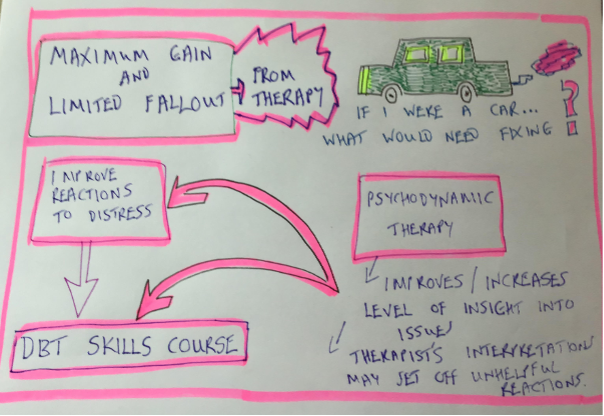 MAXIMUM GAIN
AND
LIMITED FALLOUT
FROM
THERAPY
IF I WERE A CAR...
WHAT WOULD NEED FIXING
?!
IMPROVE
REACTIONS
TO DISTRESS
PSYCHODYNAMIC
THERAPY
IMPROVES / INCREASES
LEVEL OF INSIGHT INTO
ISSUES
THERAPIST'S INTERPRETATIONS
MAY SET OFF UNHELPFUL
REACTIONS.
DBT SKILLS COURSE